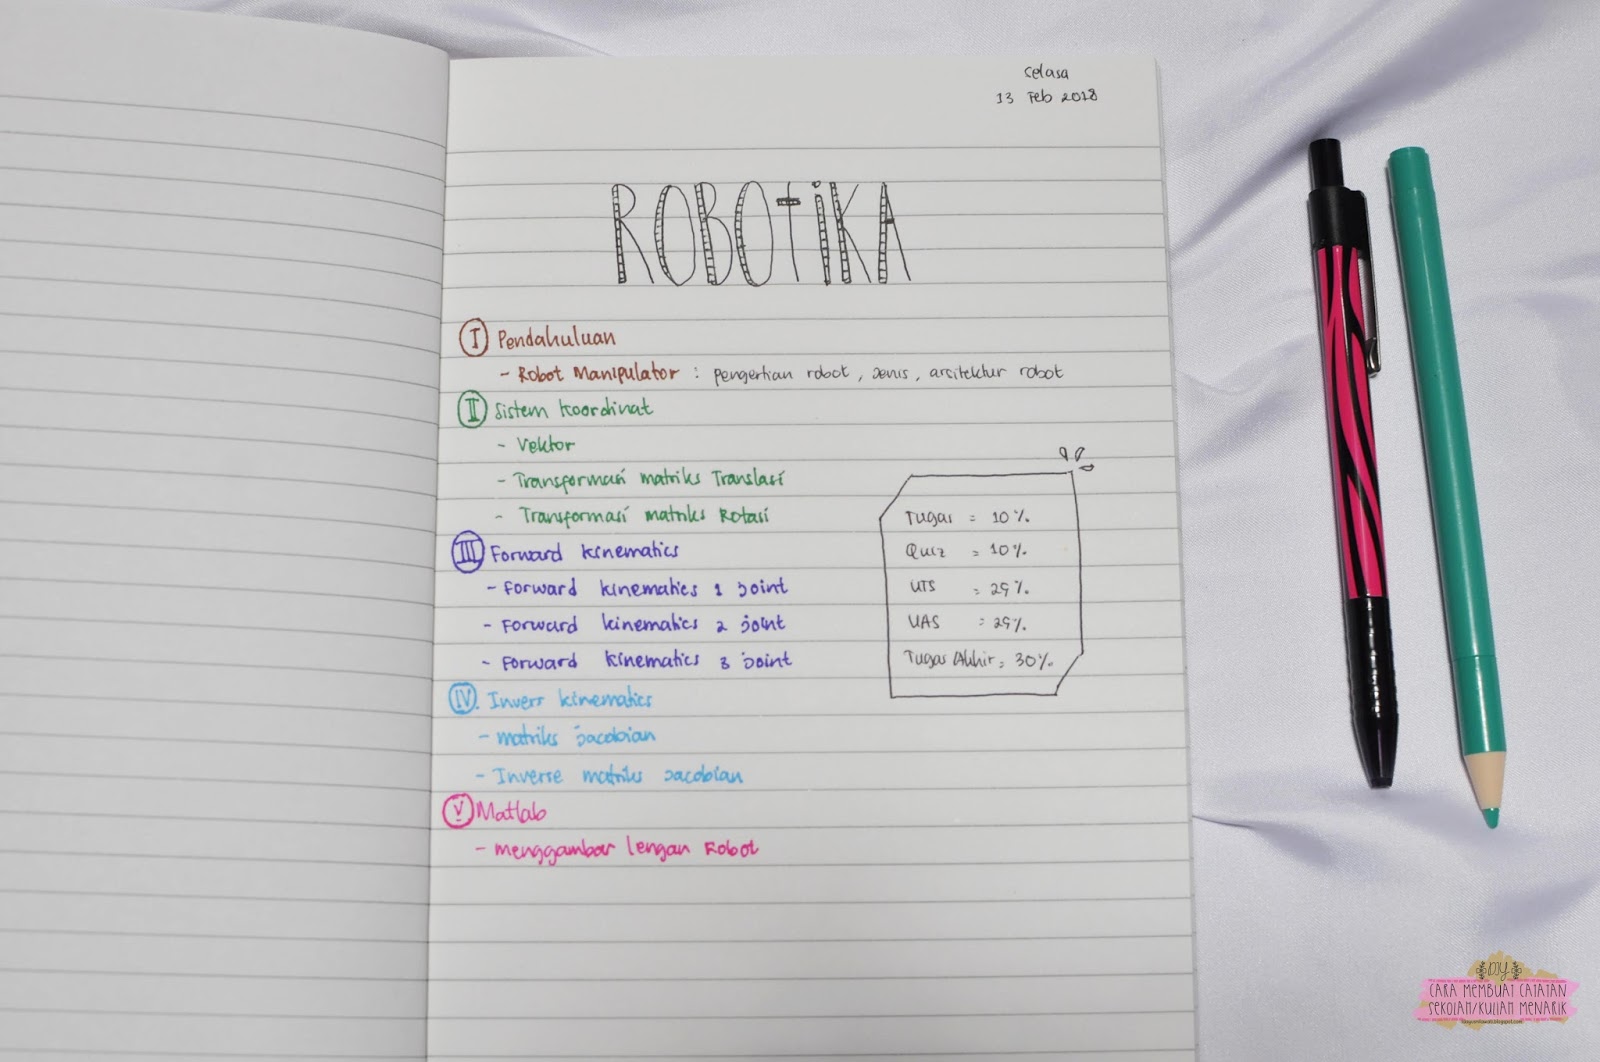 Selasa
13 Feb 2018
ROBOTiKA
I Pendahuluan
- Robot Manipulator : pengertian robot, Jenis, arsitektur robot
II Sistem koordinat
- Vektor
- Transformasi matriks Translasi
- Transformasi matriks Rotasi
III Forward kinematics
- Forward kinematics 1 joint
- Forward kinematics 2 joint
- Forward kinematics 3 joint
IV. Invers kinematics
- matriks jacobian
- Inverse matriks jacobian
V Matlab
- menggambar lengan Robot
Tugas = 10%
Quiz = 10%
UTS = 25%
UAS = 25%
Tugas Akhir = 30%
CARA MEMBUAT CATATAN
SEKOLAH/KULIAH MENARIK